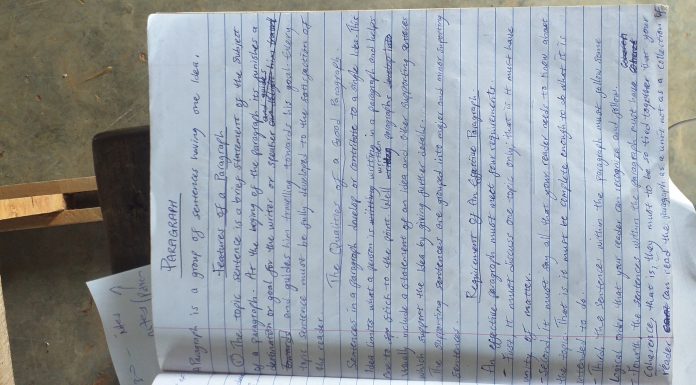 PARAGRAPH
A Paragraph is a group of sentences having one idea.
Features of a Paragraph
① The topic sentence is a brief statement of the subject
of a paragraph. At the of the paragraph, it a
destination or goal for the writer or speaker
and guides him travelling towards his goal. Every
topic sentence must be fully developed to the satisfaction of
the reader
The Qualities of a Good Paragraph.
Sentences in a paragraph develop or contribute to a single idea. This
idea limits what a person is writing in a paragraph and helps
one to stick to the point. Well written paragraphs
usually include a statement of an idea and other supporting sentences
which support the idea by giving further details.
The supporting sentences are grouped into major and minor supporting
sentences.
Requirement of an Effective Paragraph
An effective paragraph must meet four requirements.
- First it must discuss one topic only, that is it must have
unity of matter.
Second, it must say all that your reader needs to know about
the topic. That is it must be complete enough to do what it is
intended to do
Third the sentences within the paragraph must follow some
logical order that your reader can recognize and follow.
Fourth the sentences within the paragraph must have
Coherence, that is, they must be so tied together that your
reader can read the paragraph as a unit not as a collection of
idea ?
notes